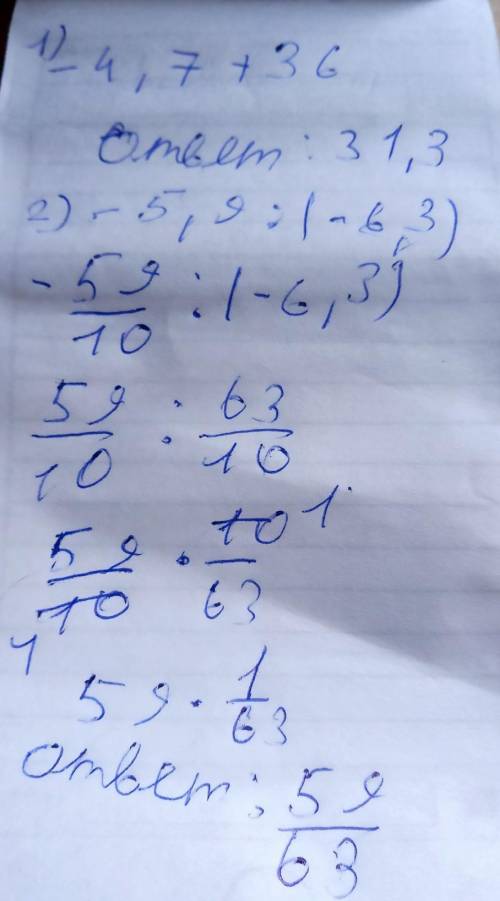 1) -4,7+36
Ответ: 31,3
2) -5,9:(-6,3)
-59/10:(-6,3)
59/10 : 63/10
59/10 · 10/63 1
1
59 · 1/63
Ответ: 59/63